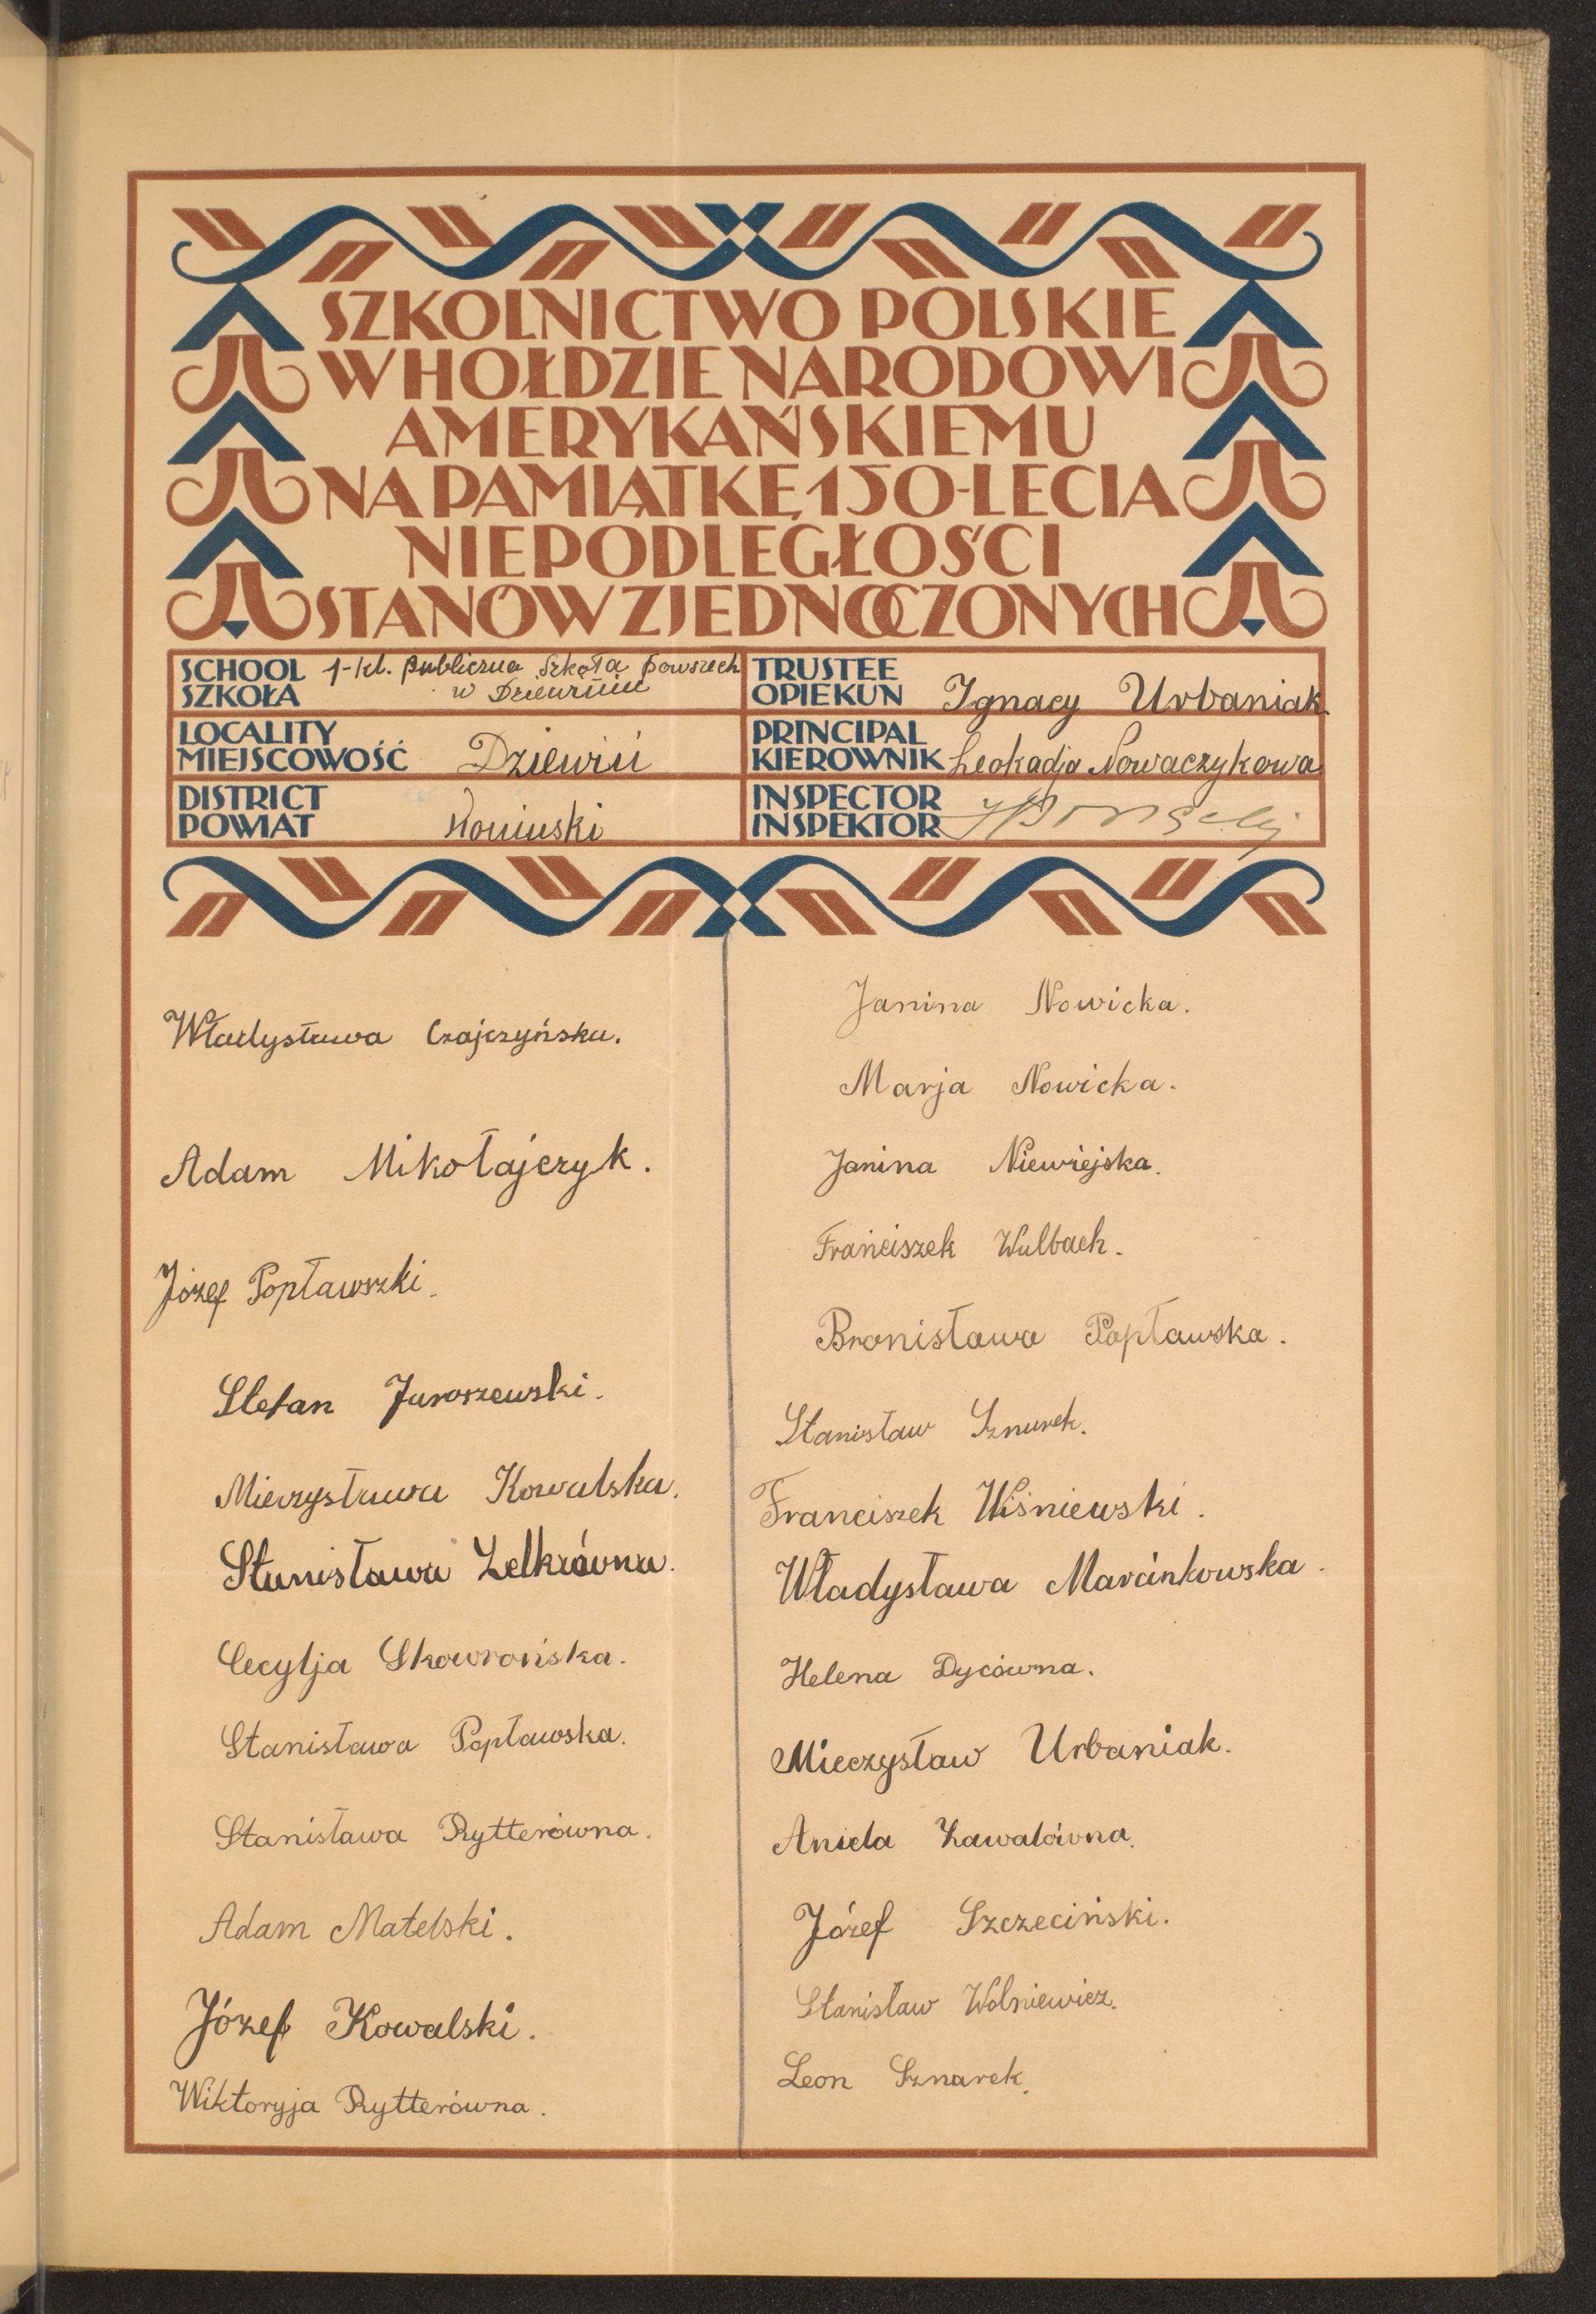 SZKOLNICTWO POLSKIE
W HOŁDZIE NARODOWI
AMERYKAŃSKIEMU
NA PAMIĄTKĘ 150-LECIA
NIEPODLEGŁOŚCI
STANÓW ZJEDNOCZONYCH
SCHOOL
SZKOŁA
1-kl. publiczna Szkoła powszech
w Dziewiniu
TRUSTEE
OPIEKUN Ignacy Urbaniak
LOCALITY
MIEJSCOWOŚĆ Dziewiń
PRINCIPAL
KIEROWNIK Leokadja Nowaczykowa
DISTRICT
POWIAT Koniński
INSPECTOR
INSPEKTOR
Władysława Czajczyńska.
Adam Mikołajczyk.
Józef Popławszki.
Stefan Jaroszewski.
Mieczysława Kowalska.
Stanisława Zelkzówna.
Cecylja Skowrońska.
Stanisława Popławska.
Stanisława Rytterówna.
Adam Matelski.
Józef Kowalski.
Wiktoryja Rytterówna.
Janina Nowicka.
Marja Nowicka.
Janina Niewiejska.
Franciszek Wulbach.
Bronisława Popławska.
Stanisław Sznurek.
Franciszek Wiśniewski.
Władysława Marcinkowska.
Helena Dycówna.
Mieczysław Urbaniak.
Aniela Zawalówna.
Józef Szczeciński.
Stanisław Wolniewicz.
Leon Sznarek.